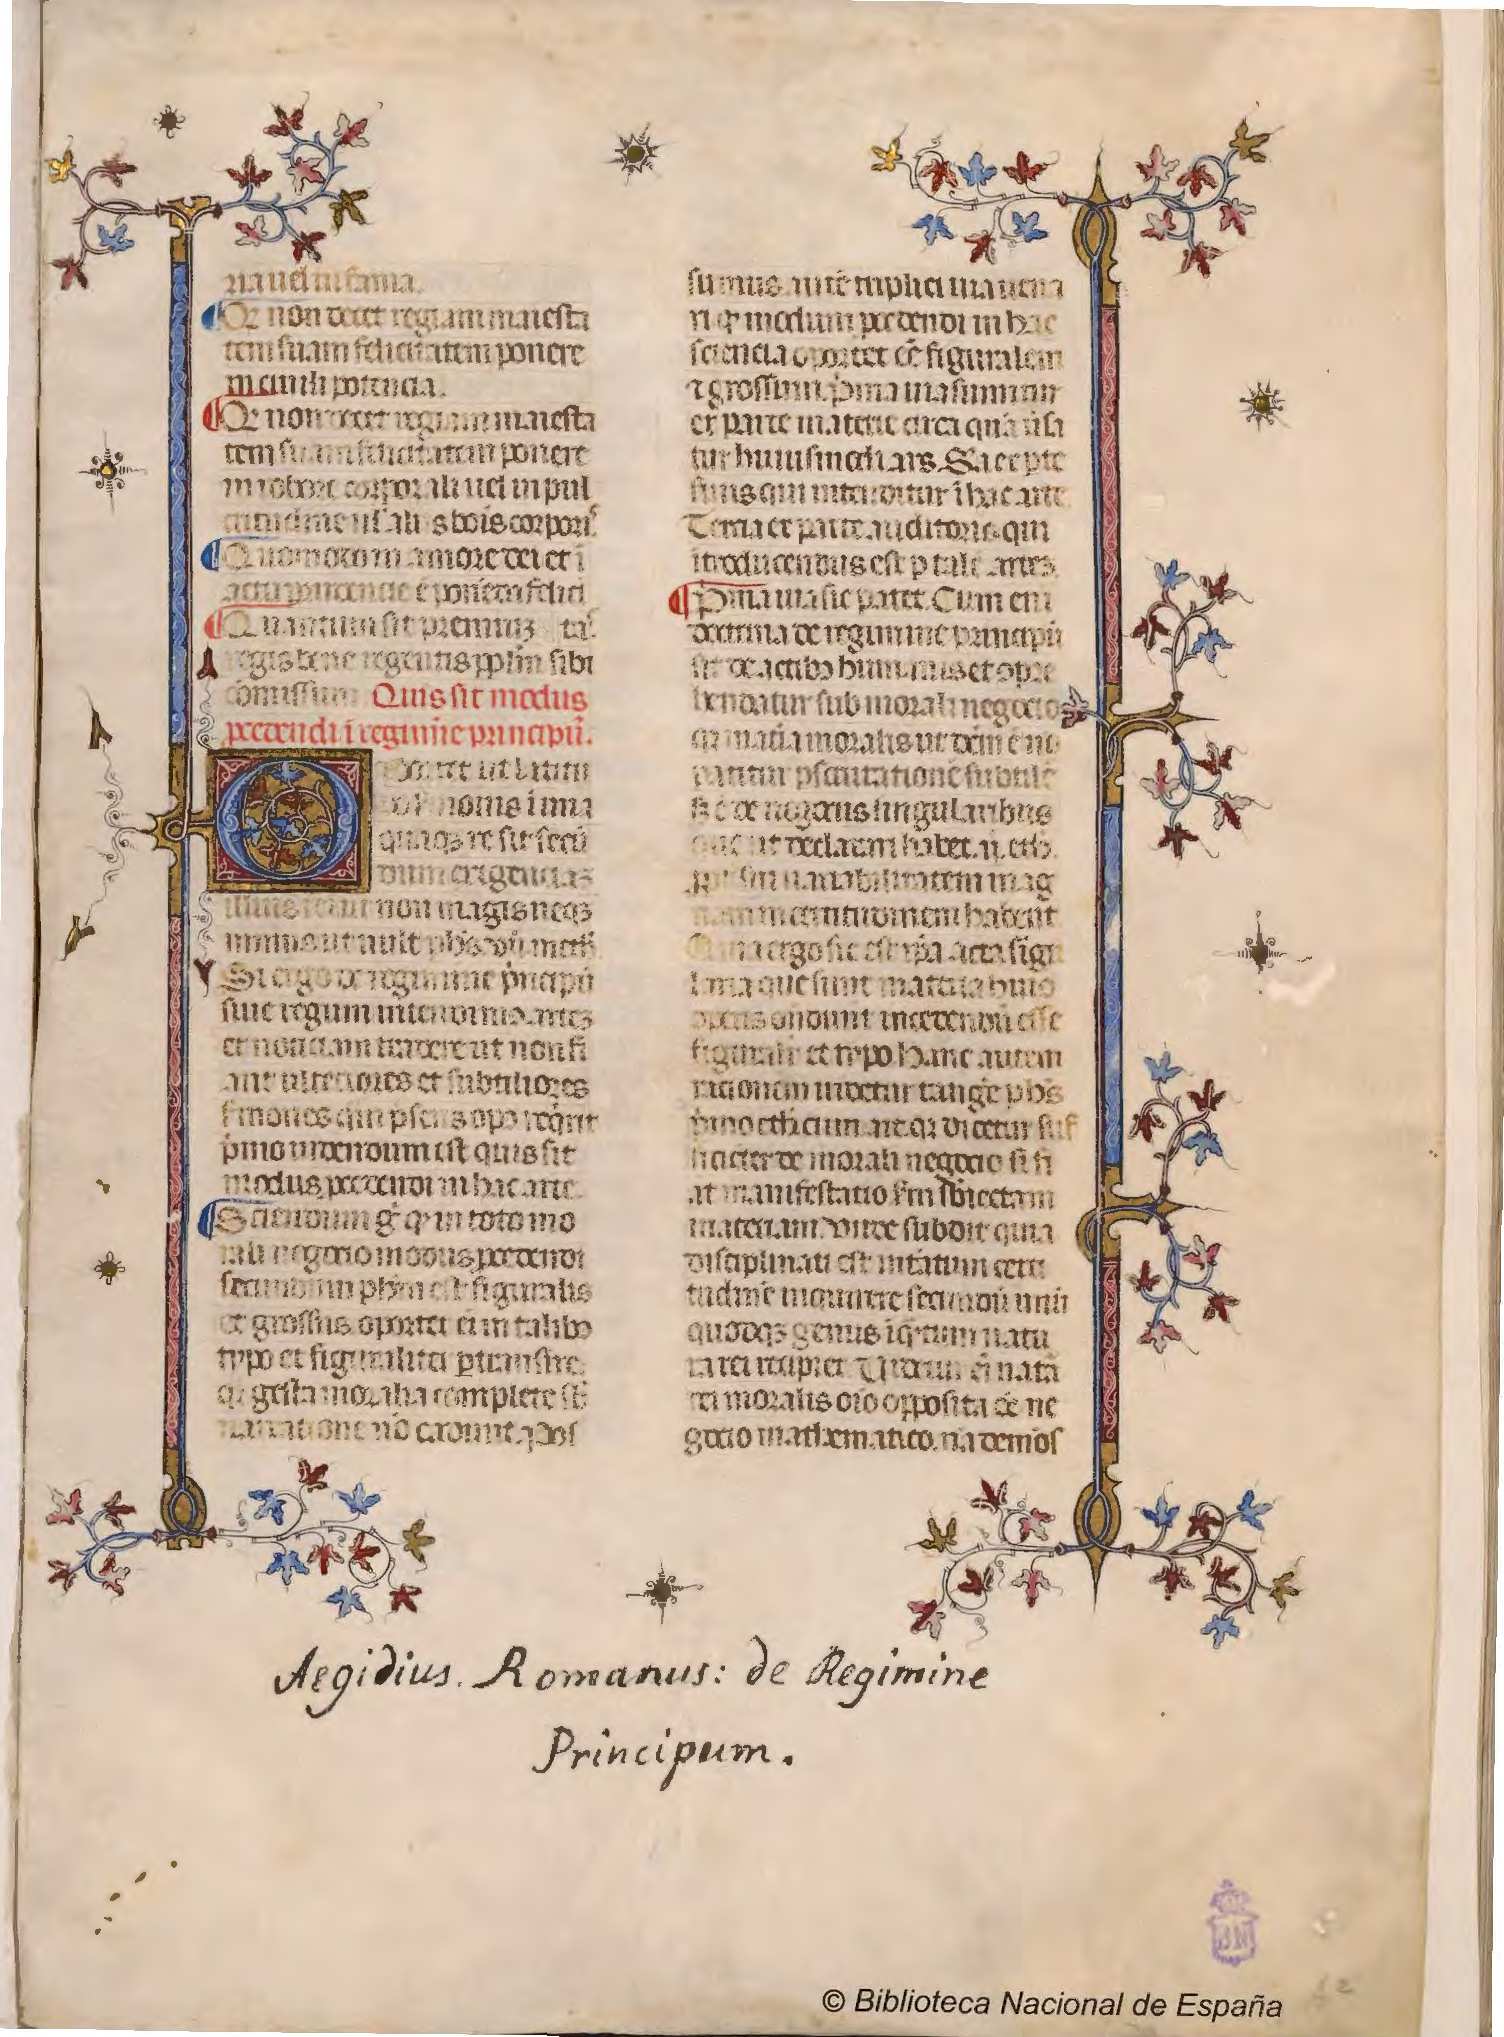 na uel in fama.
Qr non decet regiam maiesta
tem suam felicitatem ponere
in ciuili potencia.
Qr non decet regiam maiesta
tem suam felicitatem ponere
in robore corporali uel in pul
critudine ul' aliis bōis corporis
Quomodo in amore dei et ī
actu prudencie ē ponēda felici
Quantum sit premiuꝫ tas.
regis bene regentis ppl'm sibi
comissum Quis sit modus
procendi ī regimīe principū.
Oportet ut latitu
do s'monis ī una
quaqꝫ re sit secū
dum exigenciaꝫ
illius rei ut non magis neqꝫ
minus ut uult phs.
Si ergo de regimine pncipū
siue regum intendimꝰ arteꝫ
et noticiam tradere ut non fi
ant ulteriores et subtiliores
s'mones qm psens opꝰ reqrit
pmo uidendum est quis sit
modus procedendi in hac arte.
Sciendum gͦ ꝙ in toto mo
rali negocio modus procedendi
secundum phm est figuralis
et grossus oportet ei in talibꝫ
typo et figuraliter ptransire.
qr gesta moralia complete sb
narratione nō cadunt. Pos
sumus aute triplici uia uena
ri ꝙ modum procedendi in hac
sciencia oportet eē figuralem
⁊ grossum. pma uia sumitur
ex parte materie circa quā ūsa
tur huiusmodi ars. Sa ex pte
finis qui intenditur ī hac arte
Tercia ex parte auditoris qui
ītroducendus est p talē arteꝫ.
Pma uia sic patet. Cum eni
doctrina de regimine principū
sit de actibꝫ humanis et opre
hendatur sub morali negocio
qr matia moralis ut dcm ē nō
patitur pscrutationē subtilē
sꝫ ē de negociis singularibus
que ut declarari habet. ij. eth.
pp sui uariabilitatem mag
nam incertitudinem habent
Quia ergo sic est ipa acta sīgu
laria que sunt materia huiꝰ
operis ondunt incedendū esse
figurali et typo. hanc autem
rationem uidetur tange phs
pmo ethicum ait. qr dicetur suf
ficieter de morali negocio si fi
at manifestatio s'm sbiectam
materiam. unde subdit quia
disciplinati est intatum certi
tudinē inquirere secundū unū
quodqꝫ genus ī qntum natu
ra rei recipiet. Uidetur ei natā
rei moralis oīo opposita ēe ne
gocio mathematico. na demōs
Aegidius. Romanus: de Regimine
Principum.
BN
© Biblioteca Nacional de España